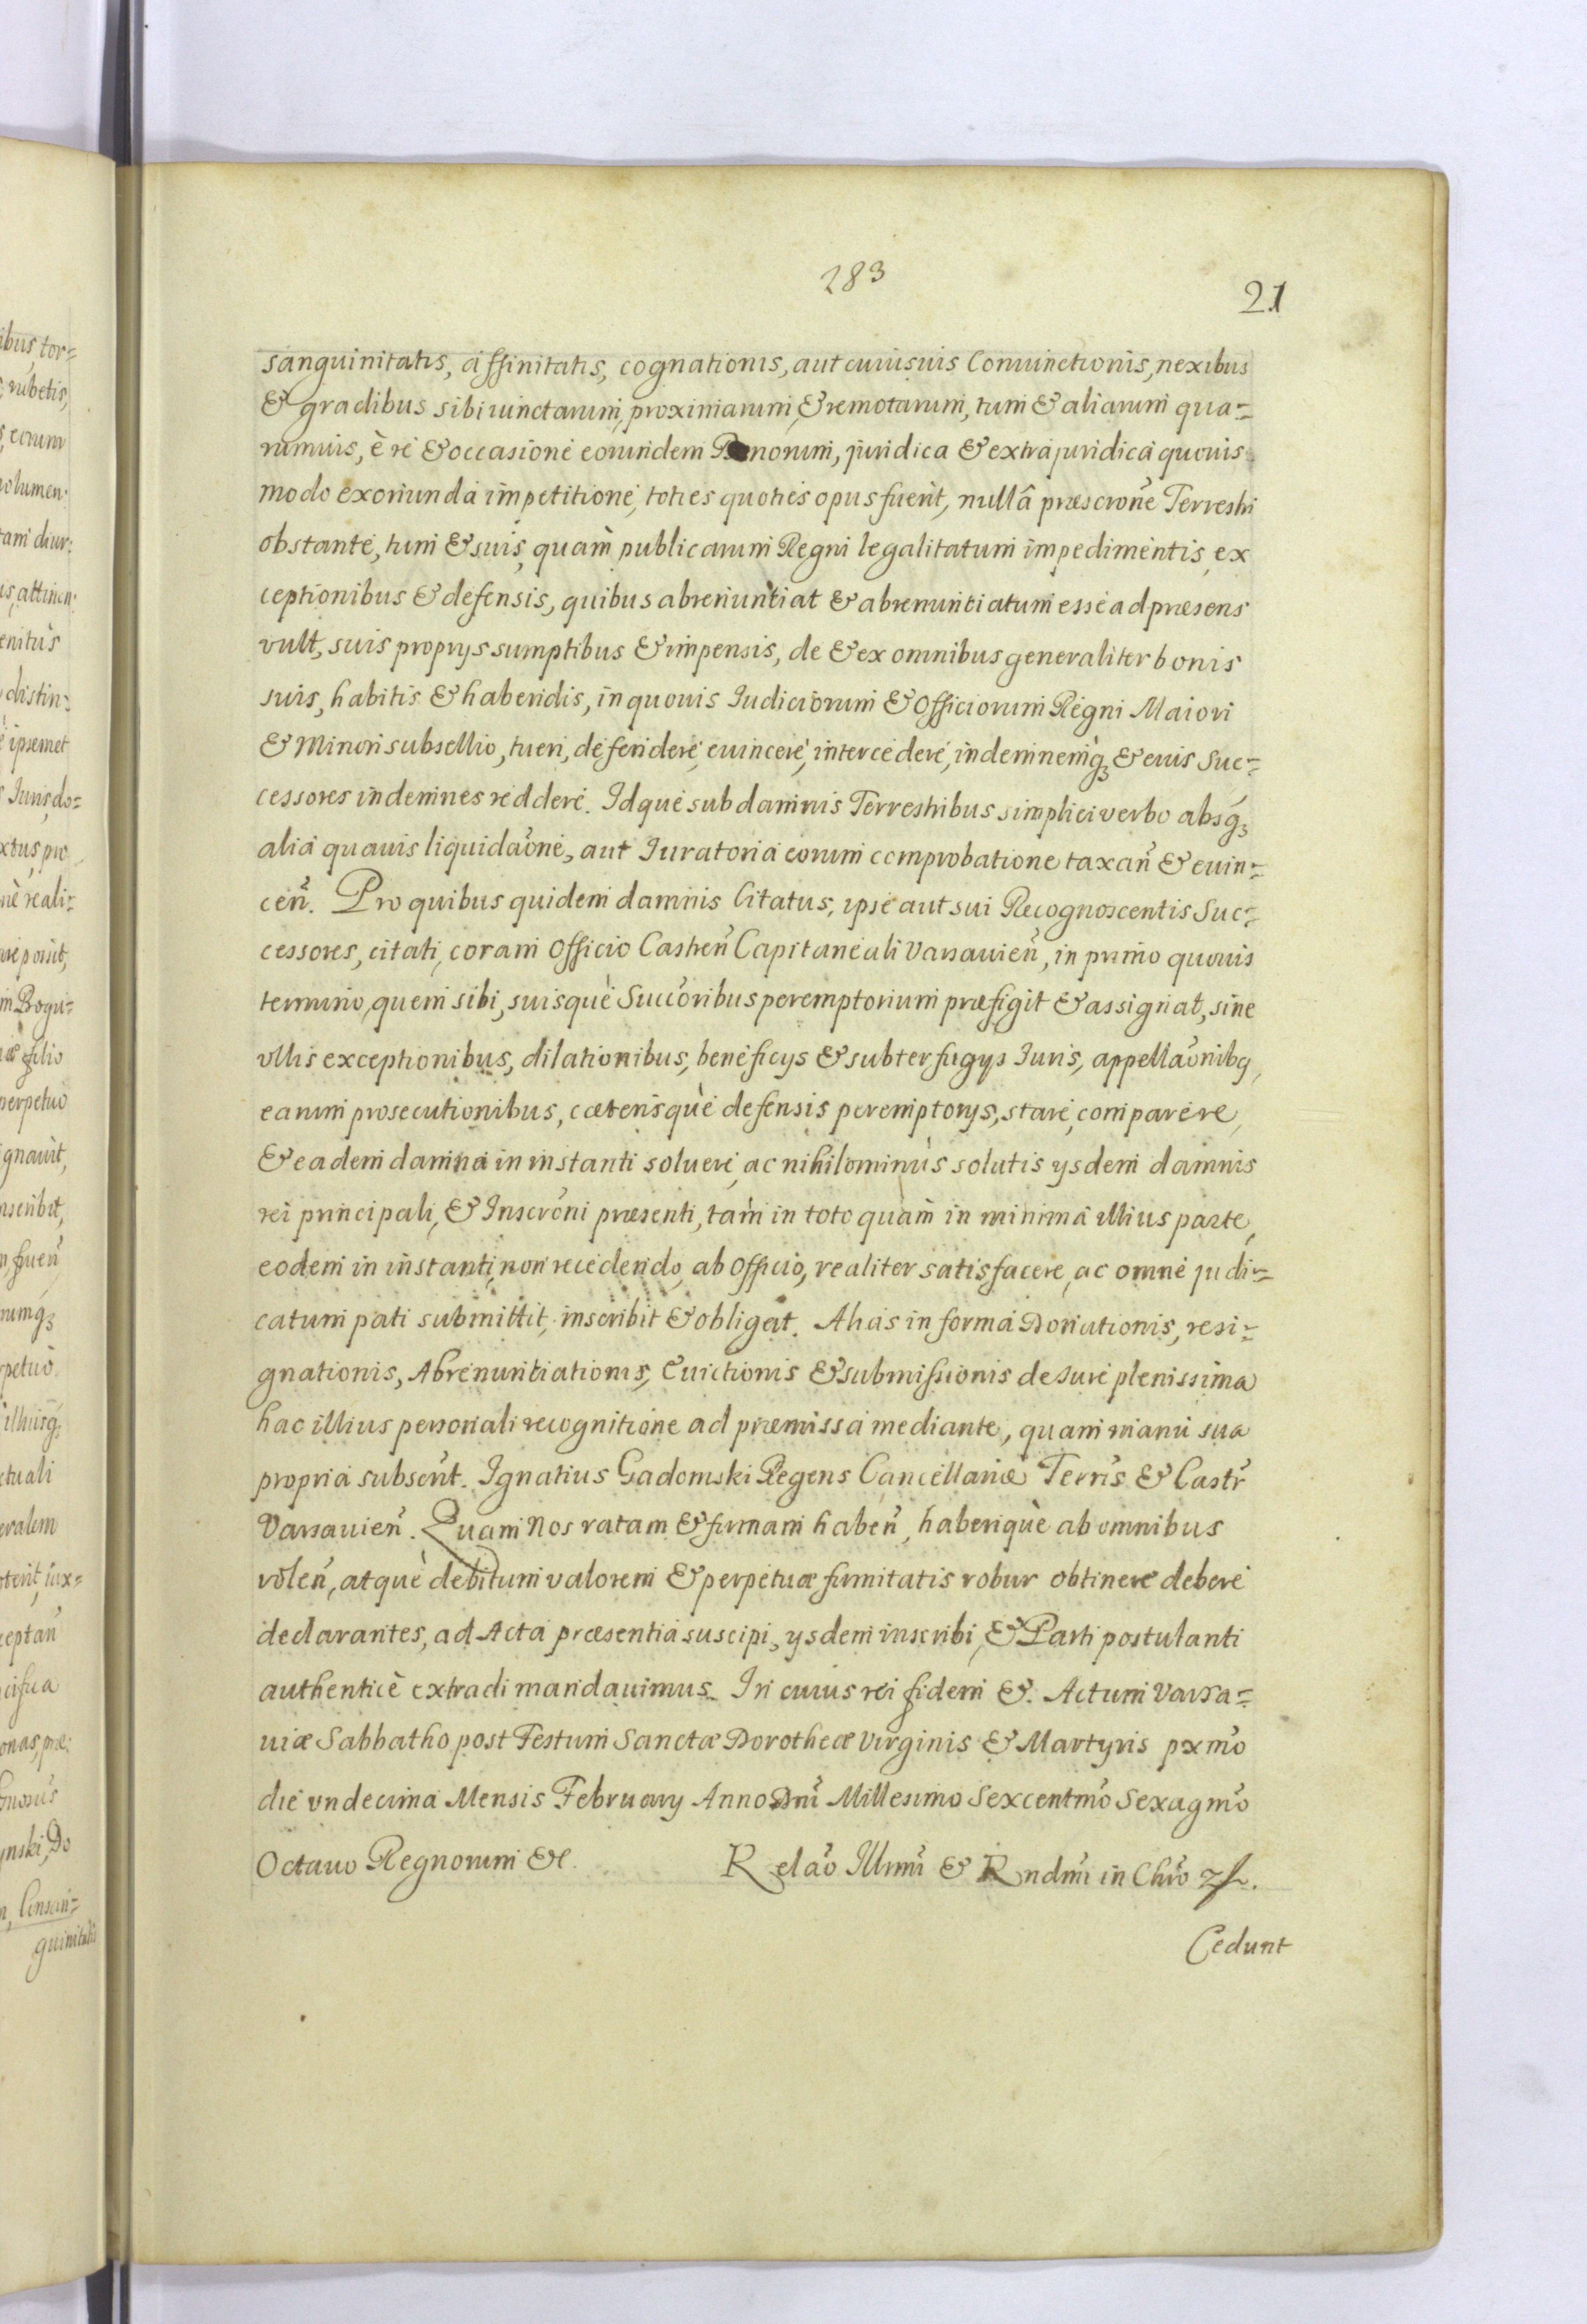 283
21
sanguinitatis, affinitatis, cognationis, aut cuiusuis Conuinctionis, nexibus
& gradibus sibi iunctarum, proximarum, & remotarum, tum & aliarum qua=
rumuis, è re & occasione eorundem Bonorum, juridica & extrajuridica quouis
modo exoriunda impetitione, toties quoties opus fuerit, nullâ præscrōne Terrestri
obstante, tum & suis, quàm publicarum Regni legalitatum impedimentis, ex
ceptionibus & defensis, quibus abrenuntiat & abrenuntiatum esse ad præsens
vult, suis proprys sumptibus & impensis, de & ex omnibus generaliter bonis
suis, habitis & habendis, in quouis Iudiciorum & Officiorum Regni Maiori
& Minori subsellio, tueri, defendere, euincere, intercedere, indemnemq₃ & euis Suc=
cessores indemnes reddere. Idque sub damnis Terrestribus simplici verbo absq₃
alia quauis liquidaōne, aut Iuratoria eorum comprobatione taxan̄ & euin=
cen̄. Pro quibus quidem damnis Citatus, ipse aut sui Recognoscentis Suc=
cessores, citati, coram Officio Castren̄ Capitaneali Varsauien̄, in primo quouis
termino, quem sibi, suisquè Succōribus peremptorium præfigit & assignat, sine
vllis exceptionibus, dilationibus, beneficys & subterfugys Iuris, appellaōnibq,
earum prosecutionibus, cæterisquè defensis peremptorys, stare, comparere,
& eadem damna in instanti soluere, ac nihilominùs solutis ysdem damnis
rei principali, & Inscrōni præsenti, tàm in toto quàm in minima illius parte,
eodem in instanti, non recedendo, ab Officio, realiter satisfacere, ac omne judi=
catum pati submittit, inscribit & obligat. Alias in forma Donationis, resi=
gnationis, Abrenuntiationis, Euictionis & submissionis de Iure plenissima
hac illius personali recognitione ad præmissa mediante, quam manu sua
propria subscr̄t. Ignatius Gadomski Regens Cancellariæ Terrīs & Castr̄
Varsauien̄. Quam Nos ratam & firmam haben̄, haberiquè ab omnibus
volen̄, atquè debitum valorem & perpetuæ firmitatis robur obtinere debere
declarantes, ad Acta præsentia suscipi, ysdem inscribi, & Parti postulanti
authenticè extradi mandauimus. In cuius rei fidem &. Actum Varsa=
uiæ Sabbatho post Festum Sanctæ Dorotheæ Virginis & Martyris pxm̄o
die vndecima Mensis February Anno Dn̄i Millesimo Sexcentm̄o Sexagm̄o
Octauo Regnorum &c.
Relaō Illmi & Rndmi in Chr̄o
Cedunt